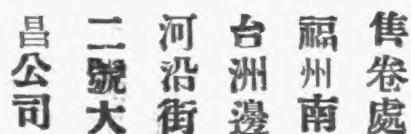 售卷處
福州南
台洲邊
河沿街
二號大
昌公司